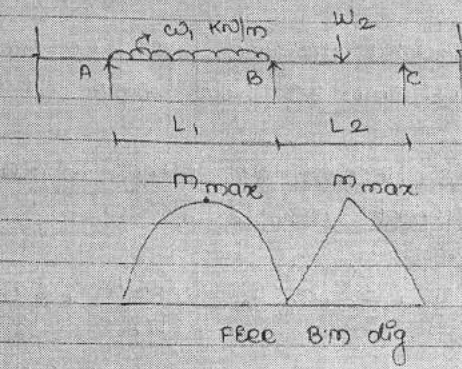 ω₁ KN/m
W₂
A
B
C
L₁
L2
Mmax
Mmax
FREE B.M dig